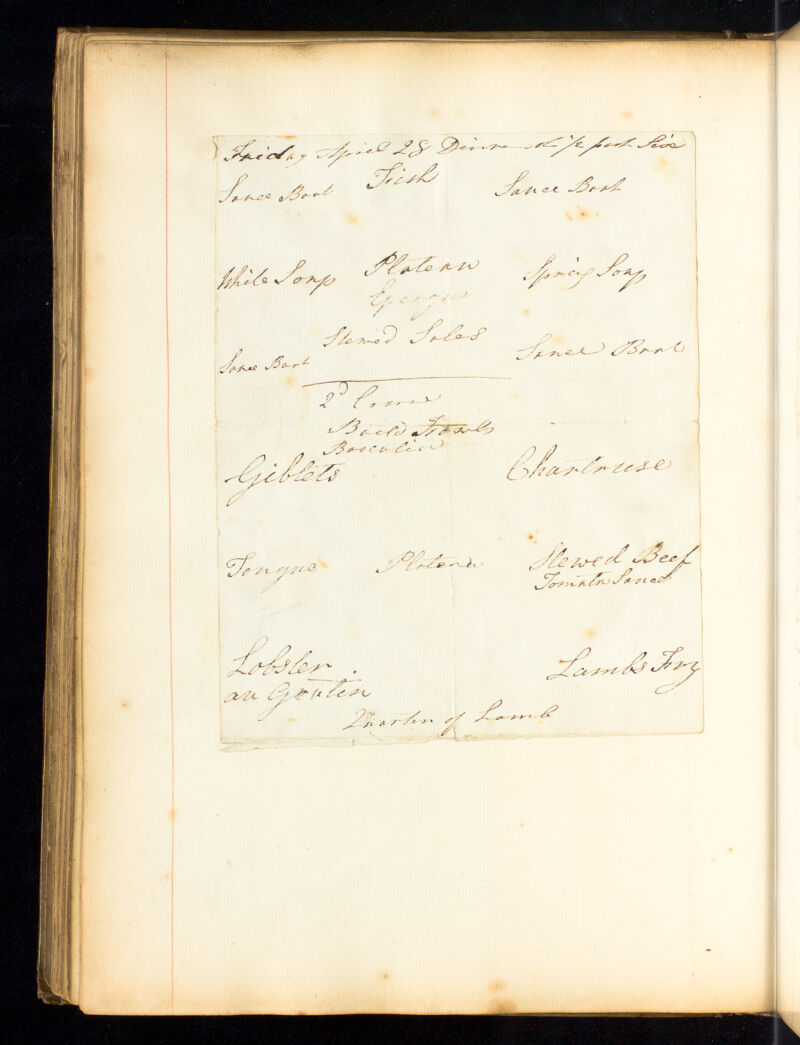 Friday April 28 Dinner at 1/2 past Five
Sauce Boat Fish Sauce Boat
White Soup Plateau Spring Soup
Epergne
Stewed Soles
Sauce Boat Sauce Boat
2d Course
Boild Fowls
Giblets Chartruse
Tongue Plateau Stewed Beef
Tomata Sauce
Lobster Lambs Fry
au Gratin
Quarter of Lamb